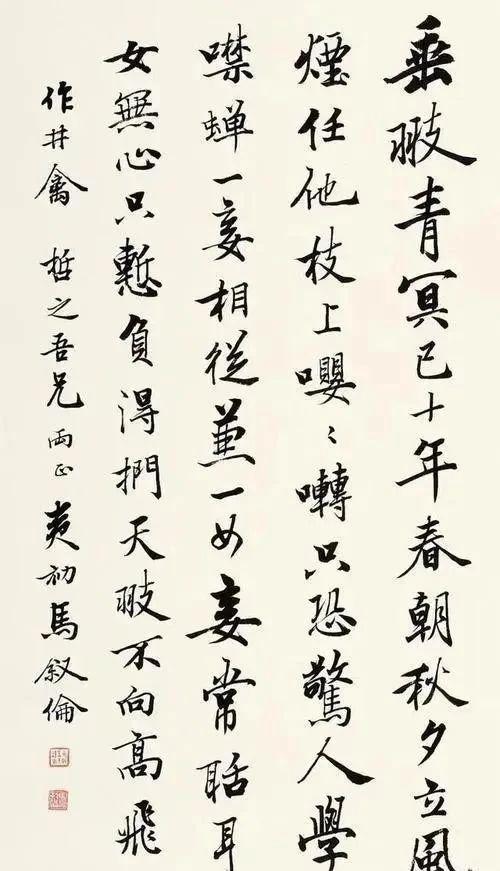 垂翄青冥已十年春朝秋夕立風
煙任他枝上嚶〻囀只恐驚人學
噤蟬一妾相從兼一女妾常聒耳
女無心只慙負得捫天翄不向高飛
作井禽 哲之吾兄 兩正 夷初馬叙倫